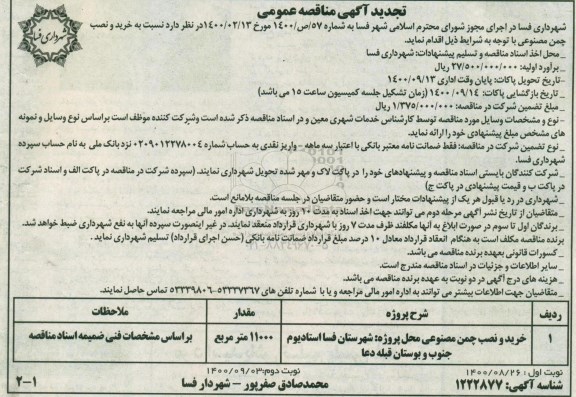 تجدید آگهی مناقصه عمومی
شهرداری فسا
شهرداری فسا در اجرای مجوز شورای محترم اسلامی شهر فسا به شماره ۵۷/ص/۱۴۰۰ مورخ ۱۴۰۰/۰۲/۱۳ در نظر دارد نسبت به خرید و نصب
چمن مصنوعی با توجه به شرایط ذیل اقدام نماید.
_ محل اخذ اسناد مناقصه و تسلیم پیشنهادات: شهرداری فسا
_ برآورد اولیه: ۳۷/۵۰۰/۰۰۰/۰۰۰ ریال
-تاریخ تحویل پاکات: پایان وقت اداری ۱۴۰۰/۰۹/۱۳
_ تاریخ بازگشایی پاکات: ۱۴۰۰/۰۹/۱۴ (زمان تشکیل جلسه کمیسیون ساعت ۱۵ می باشد)
_ مبلغ تضمین شرکت در مناقصه: ۱/۳۷۵/۰۰۰/۰۰۰ ریال
-نوع و مشخصات وسایل مورد مناقصه توسط کارشناس خدمات شهری معین و در اسناد مناقصه ذکر شده است وشرکت کننده موظف است براساس نوع وسایل و نمونه
های مشخص مبلغ پیشنهادی خود را ارائه نماید.
_ نوع تضمین شرکت در مناقصه: فقط ضمانت نامه معتبر بانکی با اعتبار سه ماهه - واریز نقدی به حساب شماره ۰۲۰۹۰۱۲۲۷۸۰۰۴ نزد بانک ملی به نام حساب سپرده
شهرداری فسا.
_ شرکت کنندگان بایستی اسناد مناقصه و پیشنهادهای خود را در پاکت لاک و مهر شده تحویل شهرداری نمایند. (سپرده شرکت در مناقصه در پاکت الف و اسناد شرکت
در پاکت ب و قیمت پیشنهادی در پاکت ج)
_ شهرداری در رد یا قبول هر یک از پیشنهادات مختار است و حضور متقاضیان در جلسه مناقصه بلامانع است.
_ متقاضیان از تاریخ نشر آگهی مرحله دوم می توانند جهت اخذ اسناد به مدت ۱۰ روز به شهرداری اداره امور مالی مراجعه نمایند.
_ برندگان اول تا سوم در صورت ابلاغ به آنها مکلفند ظرف مدت ۷ روز با شهرداری قرارداد منعقد نمایند. در غیر اینصورت سپرده آنها به نفع شهرداری ضبط خواهد شد.
برنده مناقصه مکلف است به هنگام انعقاد قرارداد معادل ۱۰ درصد مبلغ قرارداد ضمانت نامه بانکی (حسن اجرای قرارداد) تسلیم شهرداری نماید.
_ کسورات قانونی بعهده برنده مناقصه می باشد.
_ سایر اطلاعات و جزئیات در اسناد مناقصه مندرج است.
_ هزینه های درج آگهی در دو نوبت به عهده برنده مناقصه می باشد.
_ متقاضیان جهت اطلاعات بیشتر می توانند به اداره امور مالی مراجعه و یا با شماره تلفن های ۵۳۳۳۷۳۶۷-۵۳۳۳۹۸۰۶ تماس حاصل نمایند.
ردیف شرح پروژه مقدار ملاحظات
۱ خرید و نصب چمن مصنوعی محل پروژه: شهرستان فسا استادیوم جنوب و بوستان قبله دعا ۱۱۰۰۰ متر مربع براساس مشخصات فنی ضمیمه اسناد مناقصه
نوبت اول: ۱۴۰۰/۰۸/۲۶ نوبت دوم: ۱۴۰۰/۰۹/۰۳
شناسه آگهی: ۱۲۲۲۸۷۷ محمدصادق صفرپور - شهردار فسا ۲-۱